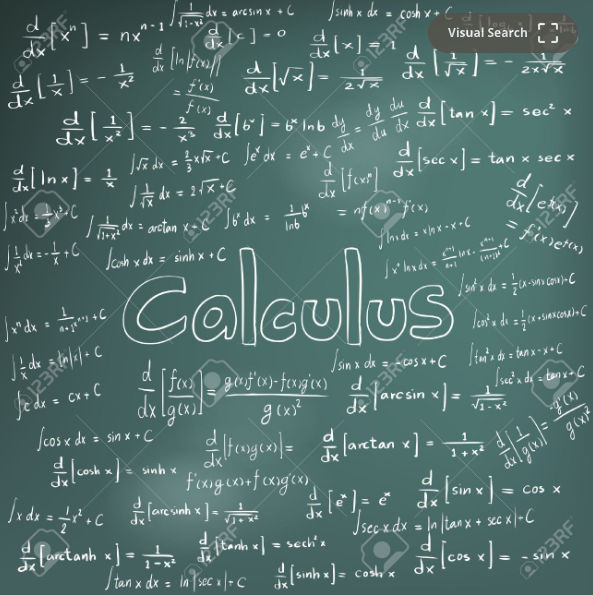 d/dx [xⁿ] = nxⁿ⁻¹
∫ 1/√1-x² dx = arcsin x + C
∫sinh x dx = cosh x + C
Visual Search
d/dx [c] = 0
d/dx [x] = 1
d/dx [1/x] = - 1/x²
d/dx [ln f(x)] = f'(x)/f(x)
d/dx [√x] = 1/2√x
d/dx [1/√x] = - 1/2x√x
d/dx [1/x²] = - 2/x³
d/dx [bˣ] = bˣ ln b
dy/dx = dy/du du/dx
d/dx [tan x] = sec² x
d/dx [ln x] = 1/x
∫√x dx = 2/3 x√x + C
∫eˣ dx = eˣ + C
d/dx [sec x] = tan x sec x
∫ 1/√x dx = 2√x + C
d/dx [f(x)ⁿ] = nf(x)ⁿ⁻¹ f'(x)
d/dx [e^f(x)] = f'(x)e^f(x)
∫x² dx = 1/3 x³ + C
∫ 1/1+x² dx = arctan x + C
∫bˣ dx = 1/ln b bˣ
∫ln x dx = x ln x - x + C
∫ 1/x² dx = - 1/x + C
∫cosh x dx = sinh x + C
∫sin² x dx = 1/2 (x - sin x cos x) + C
Calculus
∫xⁿ dx = 1/n+1 xⁿ⁺¹ + C
∫cos² x dx = 1/2 (x + sin x cos x) + C
∫ 1/x dx = ln|x| + C
∫sin x dx = -cos x + C
∫tan² x dx = tan x - x + C
∫c dx = cx + C
d/dx [f(x)/g(x)] = g(x)f'(x) - f(x)g'(x) / g(x)²
d/dx [arcsin x] = 1/√1-x²
∫sec² x dx = tan x + C
∫cos x dx = sin x + C
d/dx [f(x)g(x)] = f'(x)g(x) + f(x)g'(x)
d/dx [arctan x] = 1/1+x²
d/dx [1/g(x)] = -g'(x)/g(x)²
d/dx [cosh x] = sinh x
d/dx [eˣ] = eˣ
d/dx [sin x] = cos x
∫x dx = 1/2 x² + C
d/dx [arcsinh x] = 1/√1+x²
∫sec x dx = ln|tan x + sec x| + C
d/dx [arctanh x] = 1/1-x²
d/dx [tanh x] = sech² x
d/dx [cos x] = - sin x
∫tan x dx = ln|sec x| + C
d/dx [sinh x] = cosh x
123RF